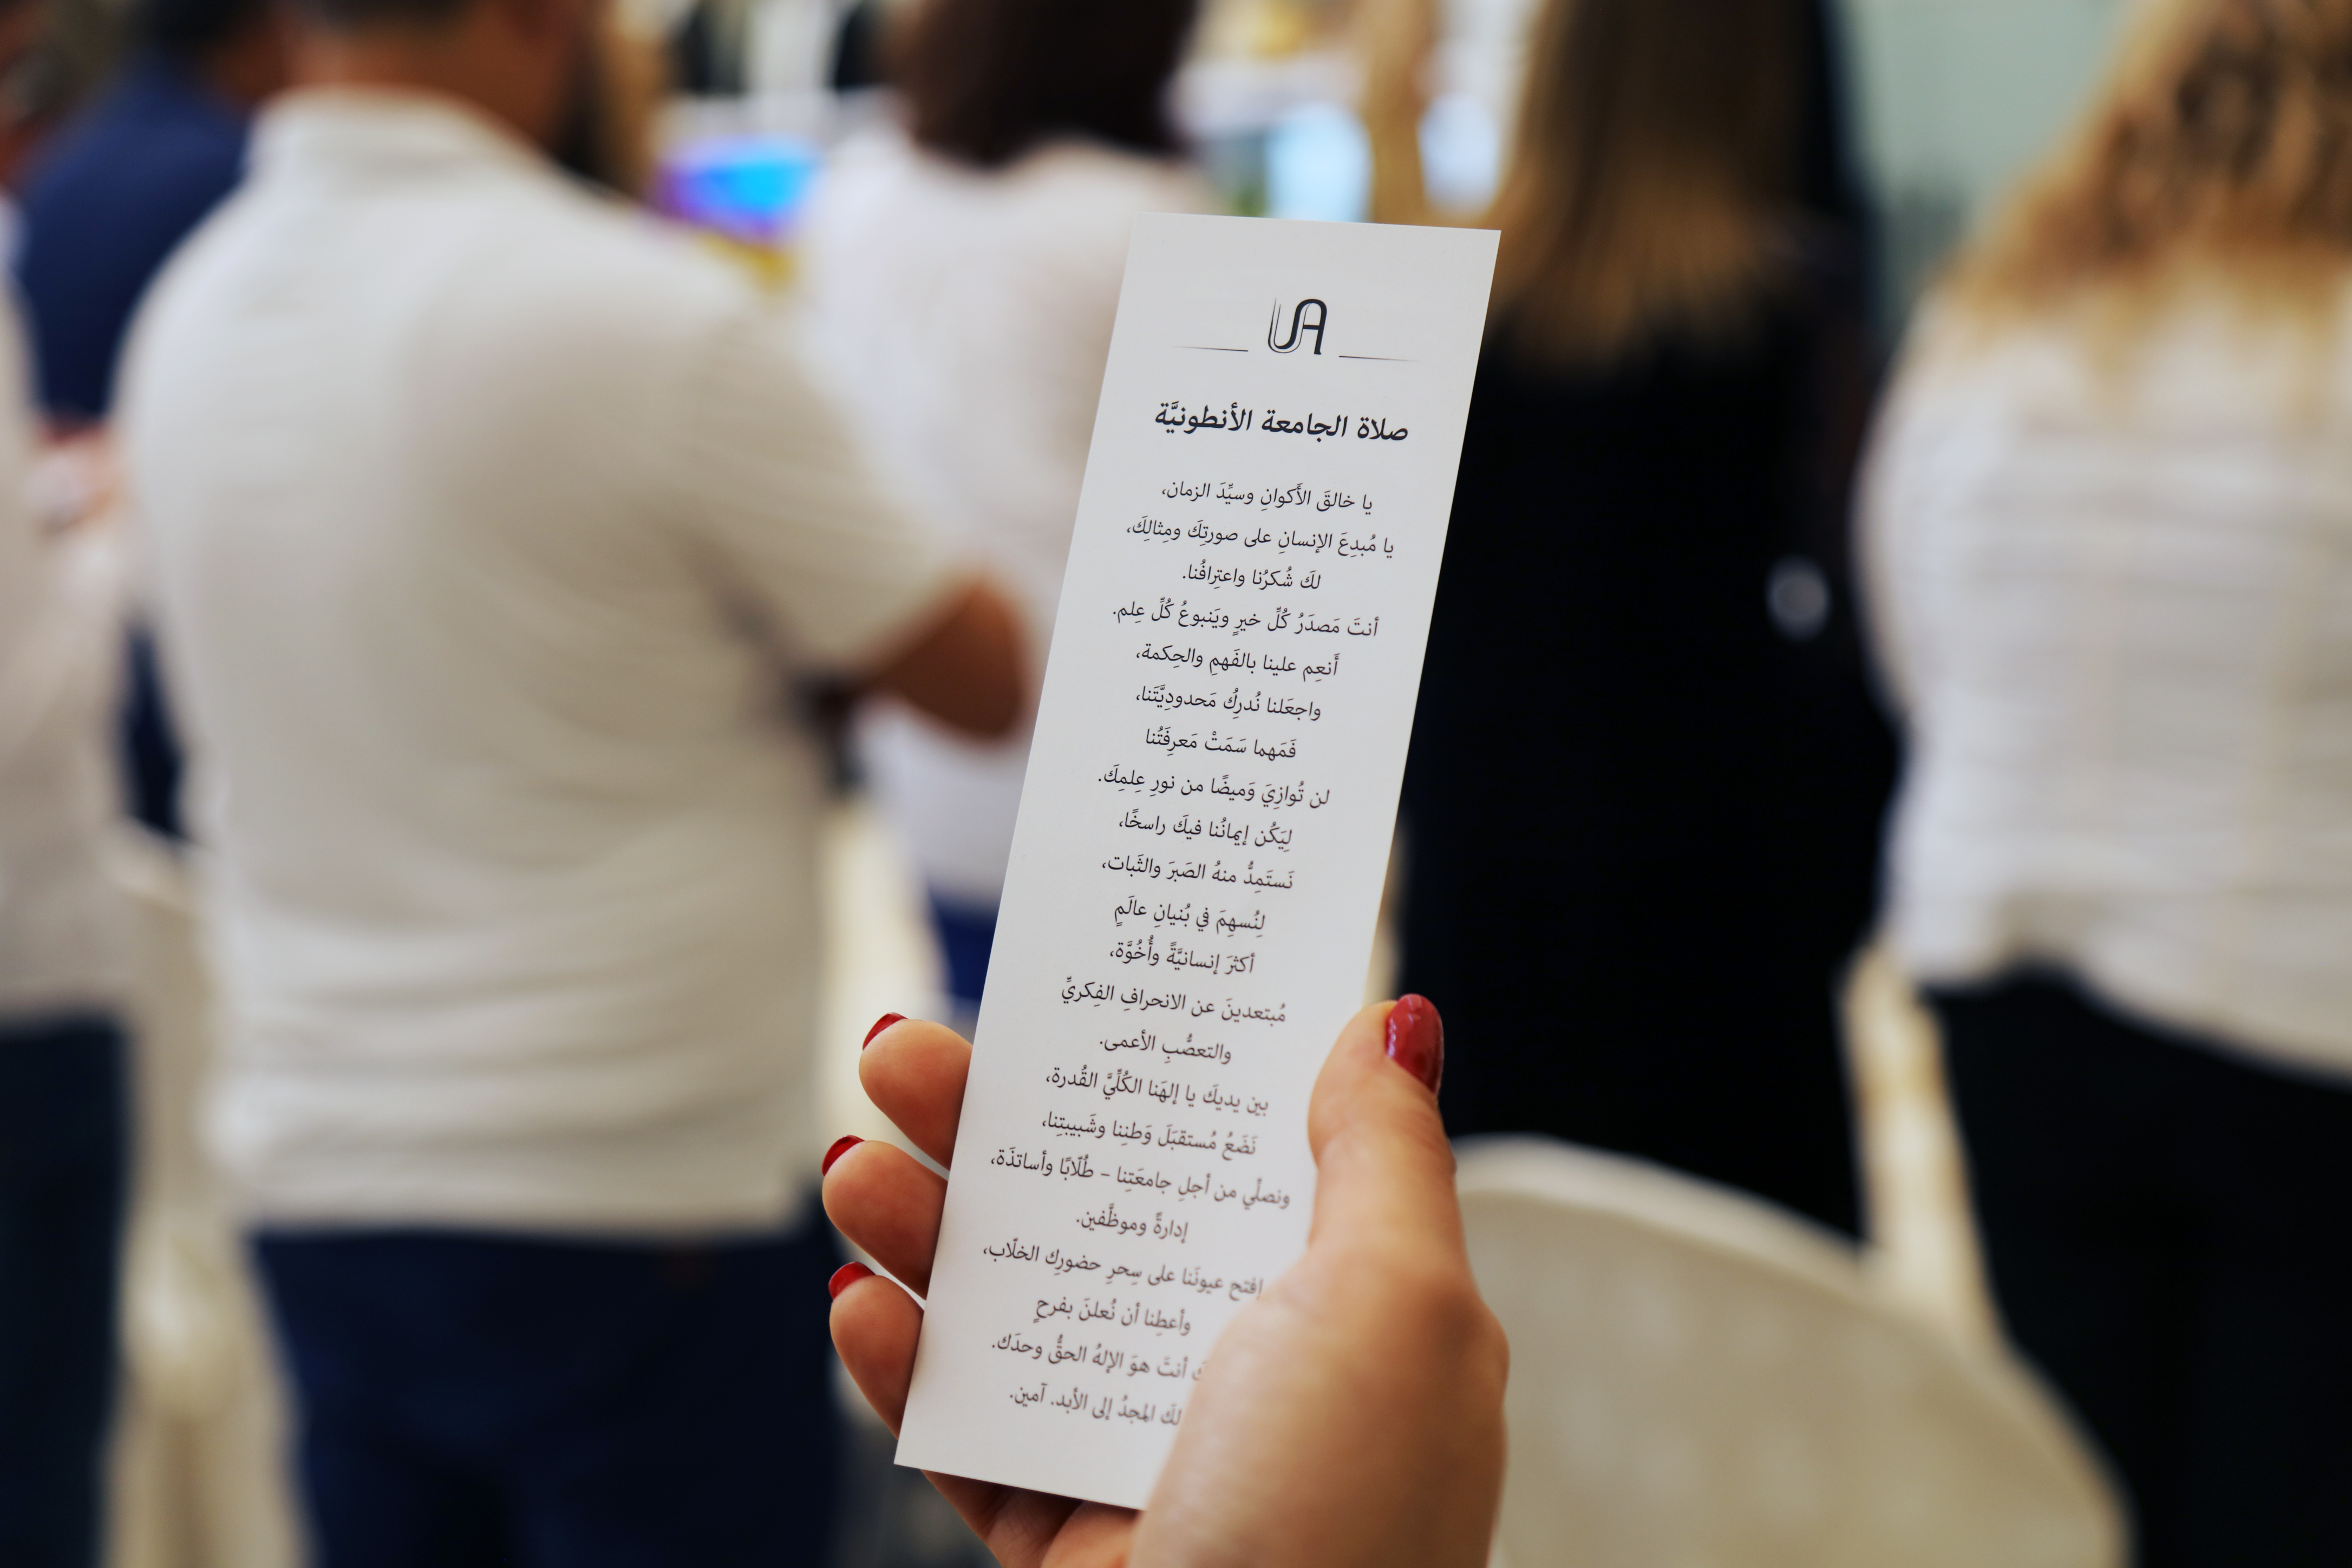 UA
صلاة الجامعة الأنطونيَّة
يا خالقَ الأَكوانِ وسيِّدَ الزمان،
يا مُبدِعَ الإنسانِ على صورتِكَ ومِثالِكَ،
لكَ شُكرُنا واعتِرافُنا.
أنتَ مَصدَرُ كُلِّ خيرٍ ويَنبوعُ كُلِّ عِلم.
أَنعِم علينا بالفَهمِ والحِكمة،
واجعَلنا نُدرِكُ مَحدودِيَّتَنا،
فَمَهما سَمَتْ مَعرِفَتُنا
لن تُوازِيَ وَميضًا من نورِ عِلمِكَ.
لِيَكُن إيمانُنا فيكَ راسخًا،
نَستَمِدُّ منهُ الصَبرَ والثَبات،
لِنُسهِمَ في بُنيانِ عالَمٍ
أكثرَ إنسانيَّةً وأُخُوَّة،
مُبتعدينَ عن الانحرافِ الفِكريِّ
والتعصُّبِ الأعمى.
بين يديكَ يا إلهَنا الكُلِّيَّ القُدرة،
نَضَعُ مُستقبَلَ وَطنِنا وشَبيبتِنا،
ونصلّي من أجلِ جامعَتِنا – طُلّابًا وأساتذَة،
إدارةً وموظَّفين.
إفتح عيونَنا على سِحرِ حضورِك الخلّاب،
وأعطِنا أن نُعلنَ بفرحٍ
أنتَ هوَ الإلهُ الحقُّ وحدَك.
لكَ المجدُ إلى الأبد. آمين.